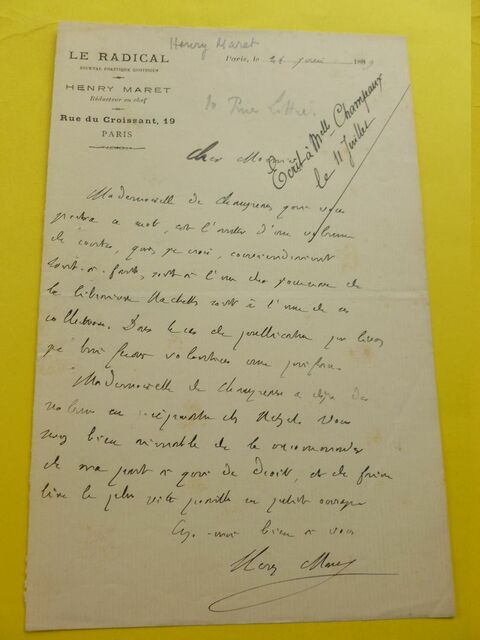 Henry Maret
LE RADICAL
JOURNAL POLITIQUE QUOTIDIEN
HENRY MARET
Rédacteur en chef
Rue du Croissant, 19
PARIS
Paris, le 26 juin 1889
10 Rue Littré
Ecrit à Melle Champeaux
le 11 Juillet
Cher Monsieur
Mademoiselle de qui vous
ce mot, est l'auteur d'un volume
de contes, qui, je crois, conviendraient
tout à fait, soit à l'un des journaux de
la librairie Hachette soit à l'une de ses
collections. Dans le cas de publication par livres
je lui ferais volontiers une préface.
Mademoiselle de a déjà des
chez Hetzel. Vous
serez bien aimable de la recommander
de ma part à qui de droit, et de faire
lire le plus vite possible ce petit ouvrage
bien à vous
Henry Maret